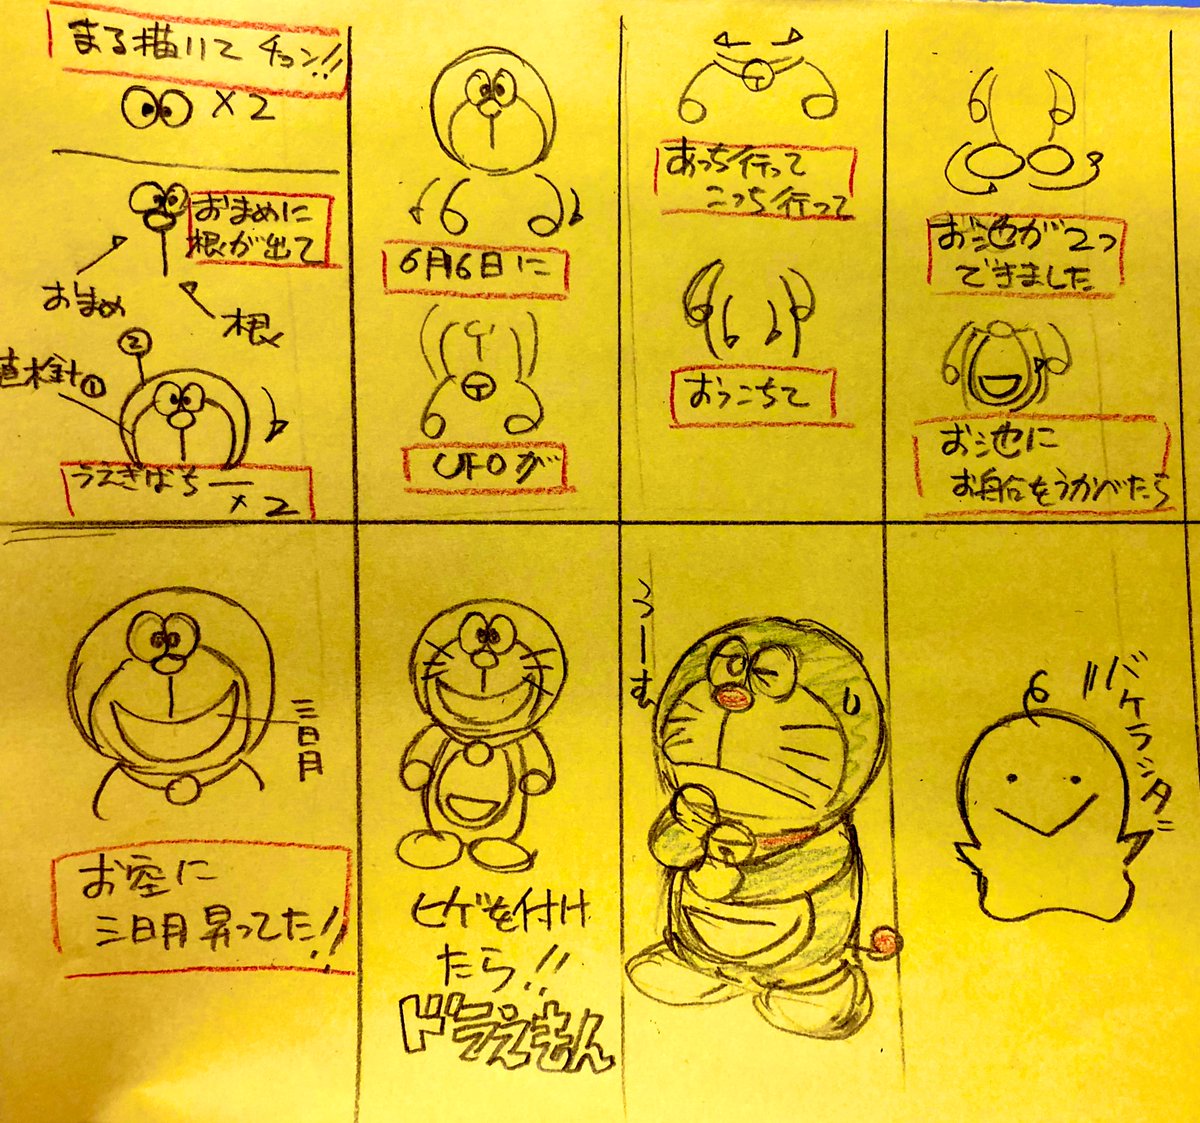 まる描いて チョン!!
×2
おまめに
根が出て
おまめ
根
②
直検針①
うえきばち
×2
6月6日に
UFOが
あっち行って
こっち行って
おっこちて
お池が2つ
できました
お池に
お舟をうかべたら
三日月
お空に
三日月昇ってた!!
ヒゲを付け
たら!!
ドラえもん
うーむ
バケラッタ